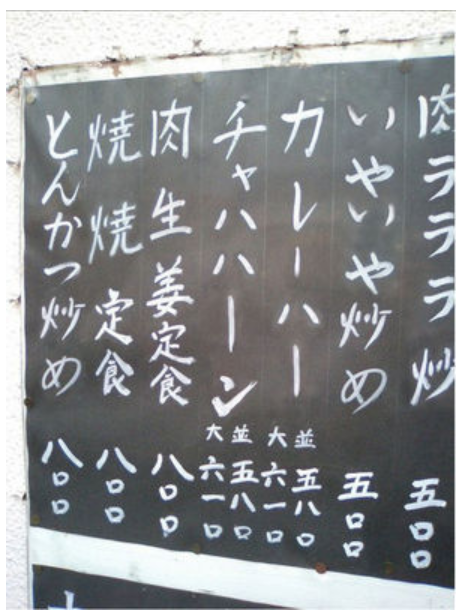 肉テテテ炒 五〇〇
いやいや炒め 五〇〇
カレーハー 並 五八〇 大 六一〇
チャハハーン 並 五八〇 大 六一〇
肉生姜定食 八〇〇
焼焼定食 八〇〇
とんかつ炒め 八〇〇